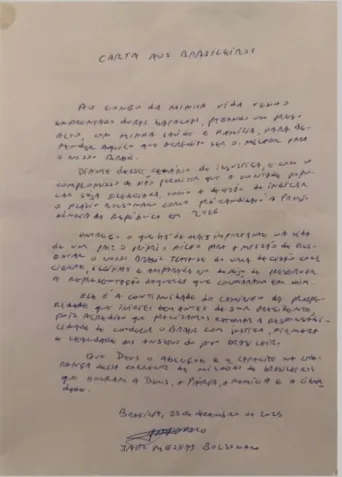 CARTA AOS BRASILEIROS
AO LONGO DA MINHA VIDA TENHO
ENFRENTADO DURAS BATALHAS, PAGANDO UM PREÇO
ALTO, COM MINHA SAÚDE E FAMÍLIA, PARA DE-
FENDER AQUILO QUE ACREDITO SER O MELHOR PARA
O NOSSO BRASIL.
DIANTE DESSE CENÁRIO DE INJUSTIÇA, E COM O
COMPROMISSO DE NÃO PERMITIR QUE A VONTADE POPU-
LAR SEJA SILENCIADA, TOMO A DECISÃO DE INDICAR
O FLÁVIO BOLSONARO COMO PRÉ-CANDIDATO À PRESI-
DÊNCIA DA REPÚBLICA EM 2026.
ENTREGO O QUE HÁ DE MAIS IMPORTANTE NA VIDA
DE UM PAI: O PRÓPRIO FILHO PARA A MISSÃO DE RES-
GATAR O NOSSO BRASIL. TRATA-SE DE UMA DECISÃO CONS-
CIENTE, LEGÍTIMA E AMPARADA NO DESEJO DE PRESERVAR
A REPRESENTAÇÃO DAQUELES QUE CONFIARAM EM MIM.
ELE É A CONTINUIDADE DO CAMINHO DA PROSPE-
RIDADE QUE INICIEI BEM ANTES DE SER PRESIDENTE,
POIS ACREDITO QUE PRECISAMOS RETOMAR A RESPONSABI-
LIDADE DE CONDUZIR O BRASIL COM JUSTIÇA, FIRMEZA
E LEALDADE AOS ANSEIOS DO POVO BRASILEIRO.
QUE DEUS O ABENÇOE E O CAPACITE NA LIDE-
RANÇA DESSA CORRENTE DE MILHÕES DE BRASILEIROS
QUE HONRAM A DEUS, A PÁTRIA, A FAMÍLIA E A LIBER-
DADE.
BRASÍLIA, 25 DEZEMBRO DE 2025
JAIR MESSIAS BOLSONARO